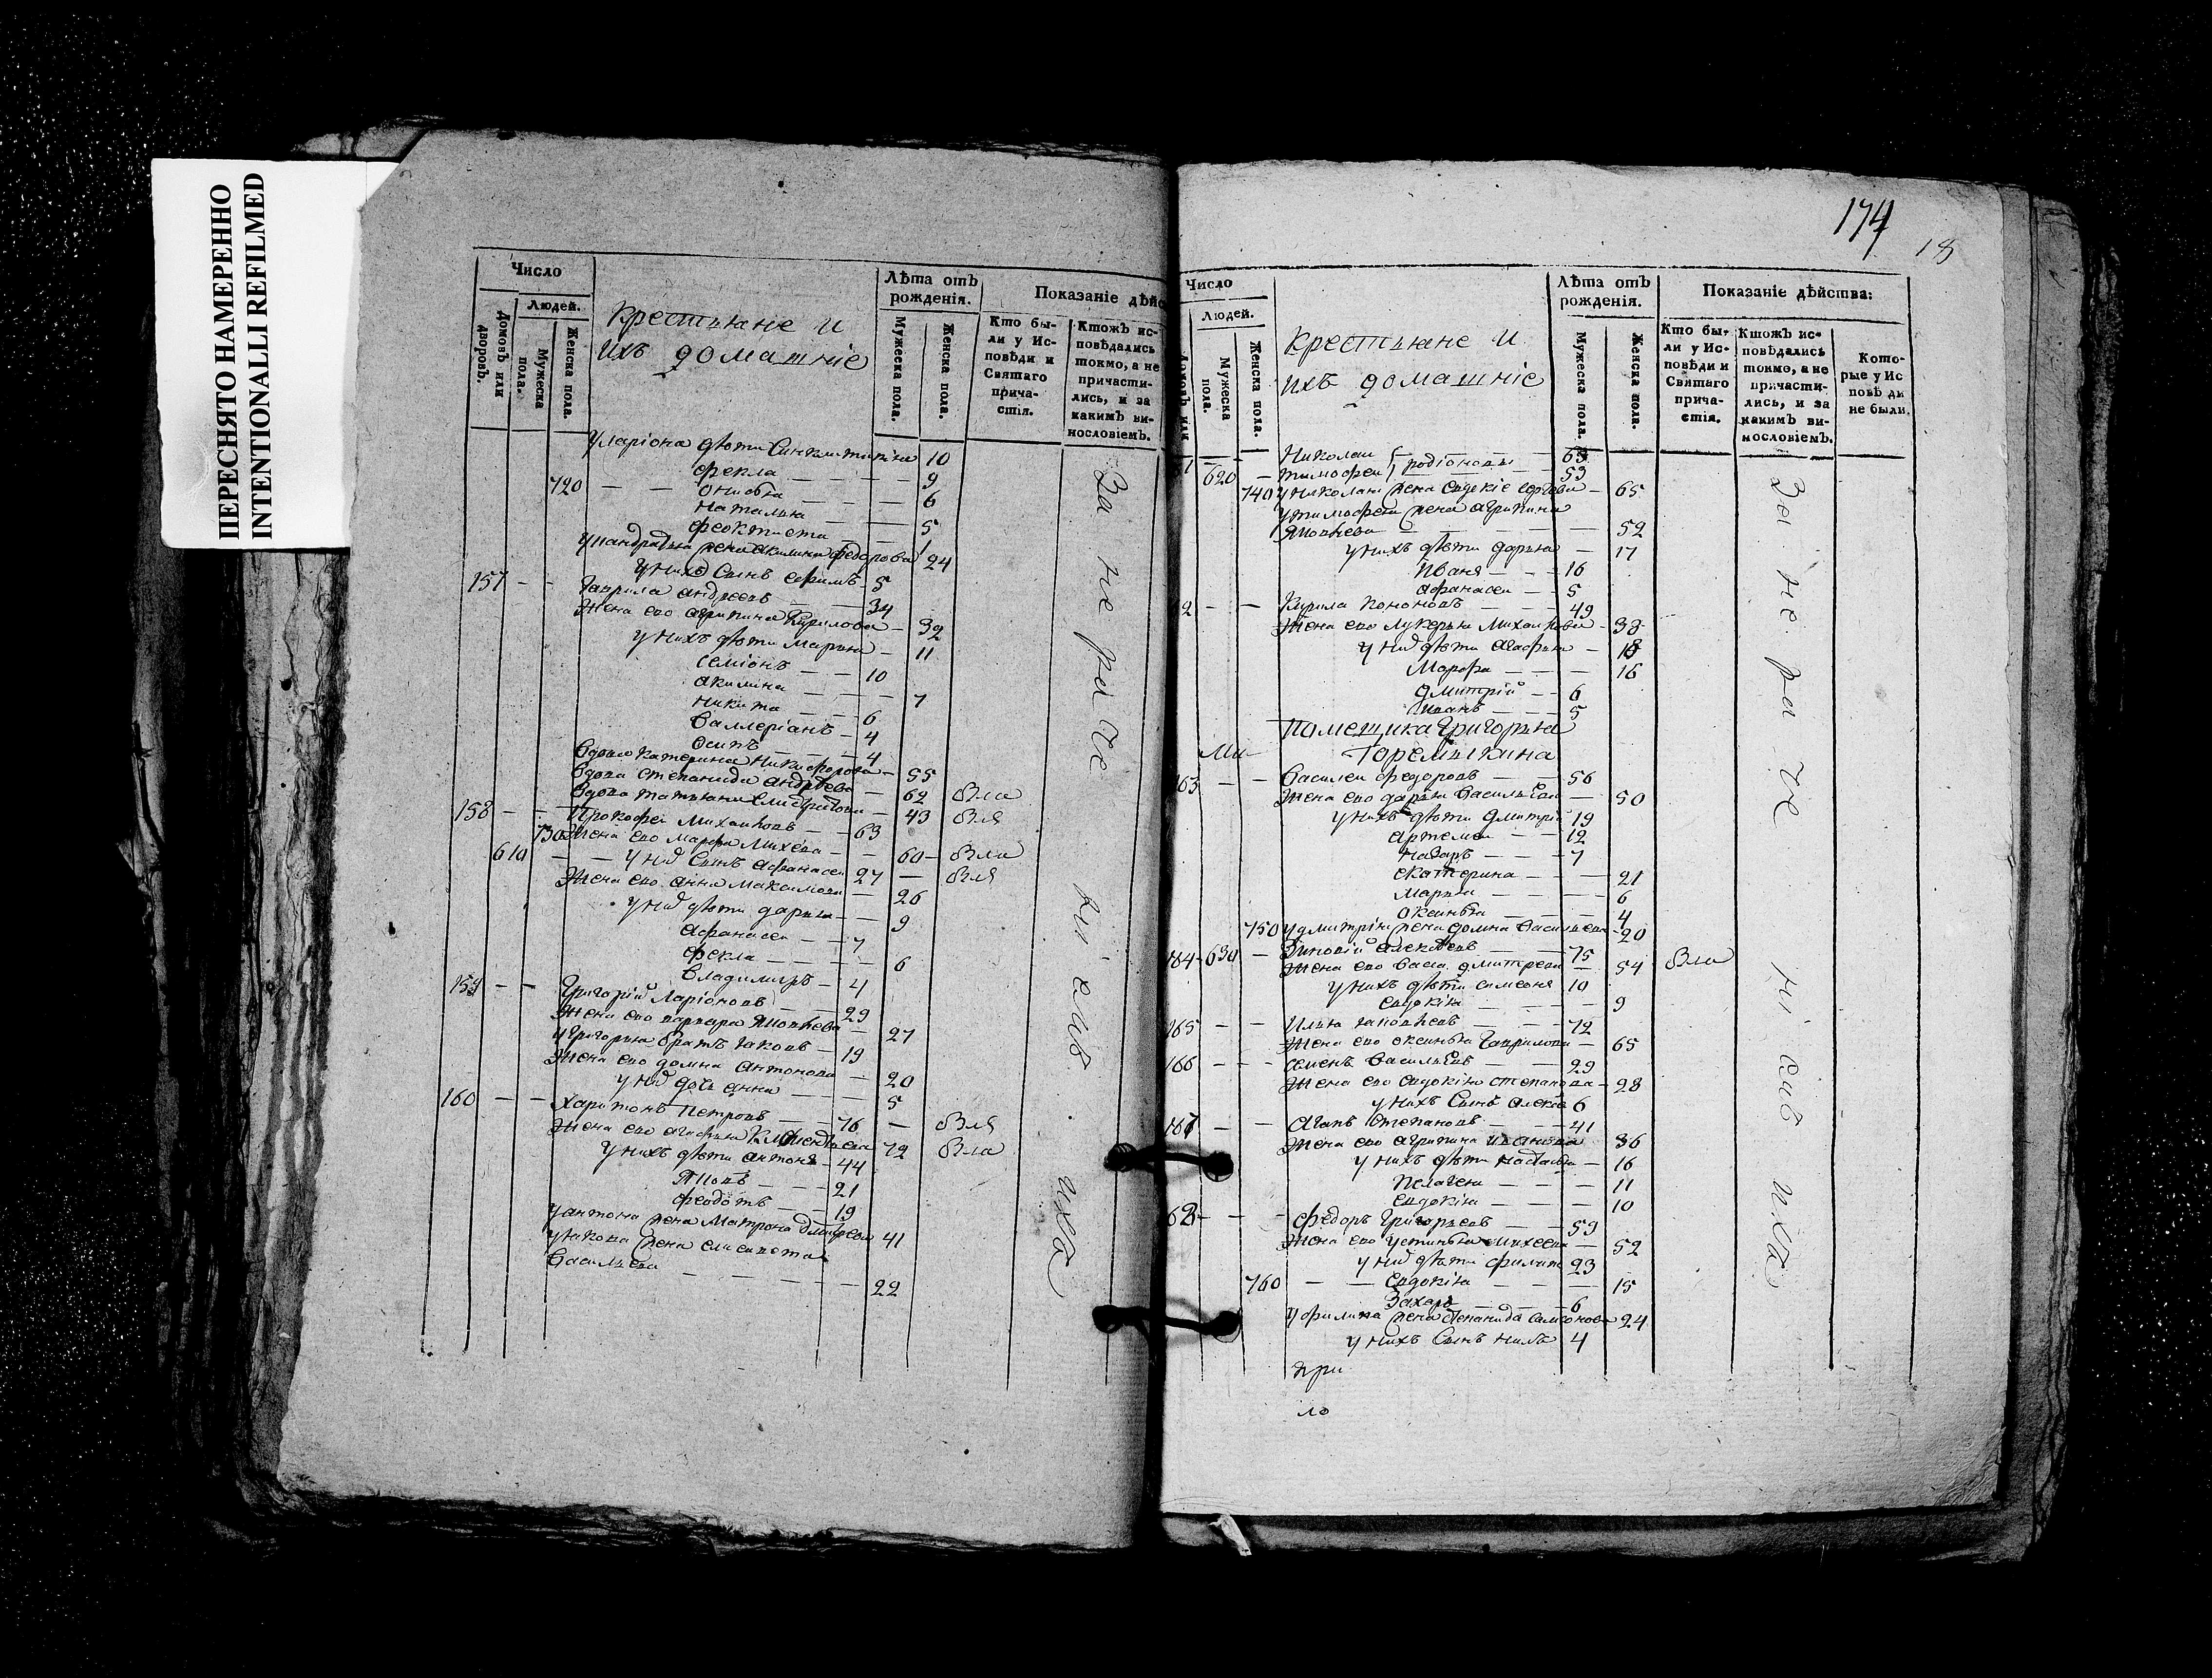 ПЕРЕСНЯТО НАМЕРЕННО
INTENTIONALLI REFILMED
Число
Людей.
Домовъ или дворовъ.
Мужеска пола.
Женска пола.
Крестьяне и
ихъ домашніе
Лѣта отъ рожденія.
Мужеска пола.
Женска пола.
Показаніе дѣйс
Кто бы-
ли у Ис-
повѣди и
Святаго
прича-
стія.
Ктожъ ис-
повѣдались
токмо, а не
причасти-
лись, и за
какимъ ви-
нословіемъ.
у ларіона дѣти 10
фекла — — — — 9
720 — — онисья — — — 6
наталья — — 5
феоктиста — 1
жена акилина федорова 24
у нихъ сынъ ефимъ 5
157 — — гаврила андреевъ — — 34
жена его агрипина Кирилова — 32
у нихъ дѣти марья — 11
семіонъ — — 10
акилина — — — 7
никита — — 6
валлеріанъ — 4
осипъ — — — 4
вдова катерина никифорова — 55
вдова степанида андрѣева — 62 была
вдова татьяна 43 бля
158 — — Прокофей Михаиловъ — — 63
730 жена его марфа михева — — 60 — была
610 — — у них сынъ афанасеи 27 — бля
жена его анна максимова — 26
у них дѣти дарья — — 9
афанасеи — — 7
фекла — — — — 6
владимиръ — 4
159 — — григорій ларіоновъ — 29
жена его варвара яковлева — 27
у григорья братъ іаковъ — 19
жена его домна антонова — 20
у них дочь анна — — 5
160 — — харитонъ петровъ — — 76 — бля
жена его агафья 72 была
у нихъ дѣти антонъ — 44
яковъ — — — 21
феодотъ — — 19
у антона жена матрона 41
у якова жена елисавета
васильева — — — — — 22
За не ра че ні емъ ихъ
174
18
Число
Людей.
Домовъ или
Мужеска пола.
Женска пола.
Крестьяне и
ихъ домашніе
Лѣта отъ рожденія.
Мужеска пола.
Женска пола.
Показаніе дѣйства:
Кто бы-
ли у Ис-
повѣди и
Святаго
прича-
стія.
Ктожъ ис-
повѣдались
токмо, а не
причасти-
лись, и за
какимъ ви-
нословіемъ.
Кото-
рые у Ис
повѣди
не были.
1 — Николаи родіоновы — — 63
620 — тимофеи — — 53
740 у николаи жена евдокіе — 65
у тимофеи жена агрипина
яковлева — — — — 52
у нихъ дѣти дарья — 17
ивана — — — 16
афанасеи — — 5
2 — — Кирила Кононовъ — — — 49
жена его лукерья михаилова — 38
у них дѣти агафья — 18
марфа — — — 16
дмитрій — — 6
иванъ — — — 5
помещика григорья
горемыкина
163 — — василеи федоровъ — — 56
жена его дарья васильева — 50
у нихъ дѣти дмитріи 19
артемеи — — 12
назаръ — — — 7
екатерина — — — 21
марья — — — — 6
оксинья — — — 4
750 у дмитрія жена домна васильева — 20
164 — 630 — Зиновій алексѣевъ — — 75
жена его васа дмитрева — 54 была
у нихъ дѣти самсона 10
евдокія — — — 9
165 — — илья іаковлевъ — — — 72
жена его оксинья гаврилова — 65
166 — — — семенъ васильевъ — — 29
жена его евдокія степанова — 28
у нихъ сынъ алексѣи 6
167 — — агапъ степановъ — — — 41
жена его агрипина иванова 36
у нихъ дѣти наталья — 16
пелагеи — — — 11
евдокія — — — 10
168 — — — федоръ григорьевъ — — 59
жена его устинья михеева — 52
у них дѣти филипъ 23
760 — — евдокія — — — 15
Захаръ — — — 6
у филипа жена степанида самсонова 24
у нихъ сынъ нилъ 4
при
ло
За не ра че ні емъ ихъ